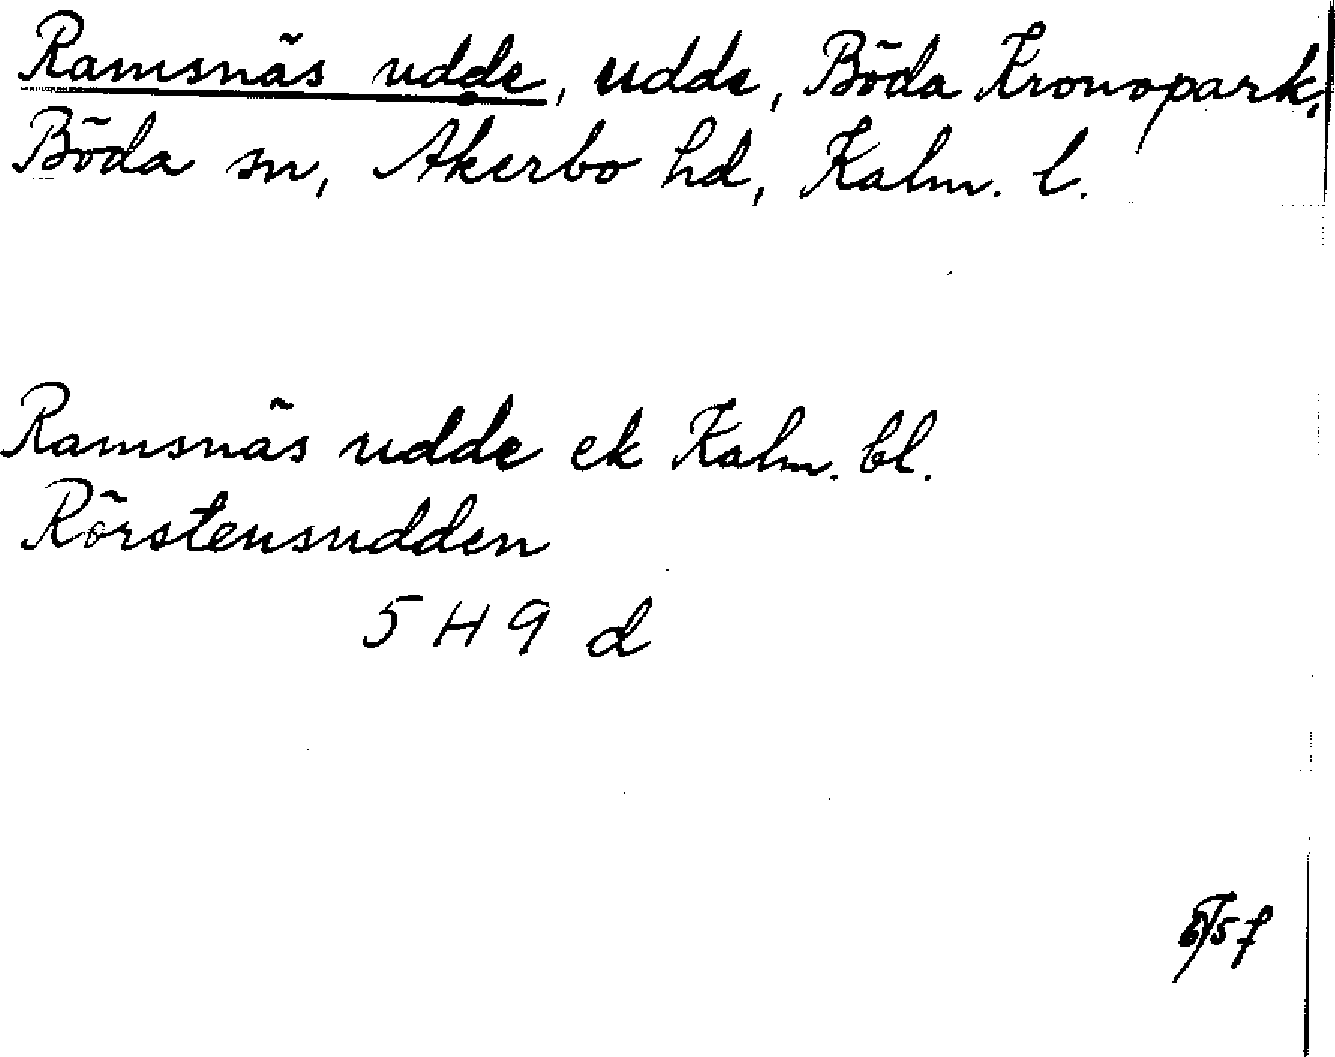 Ramsnäs udde, udde, Böda Kronopark,
Böda sn, Åkerbo hd, Kalm. l.
Ramsnäs udde ek Kalm. bl.
Rörstensudden
5 H 9 d